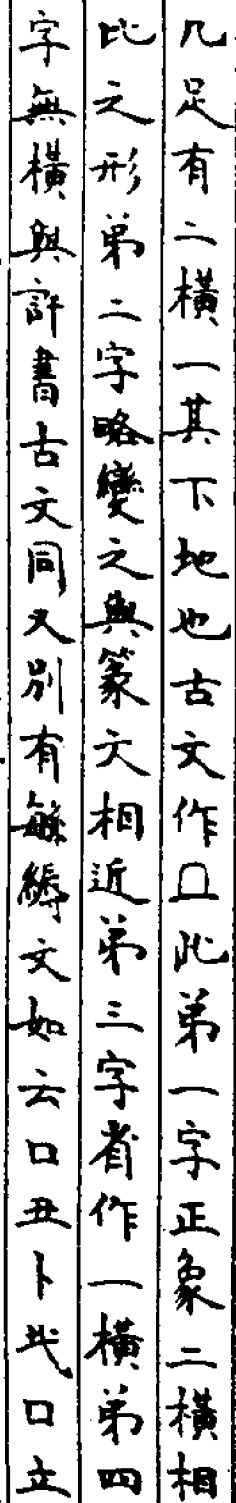 几足有二橫一其下地也古文作冂此第一字正象二橫相
比之形第二字略變之與篆文相近第三字省作一橫第四
字無橫與許書古文同又別有緐縟文如云口丑卜口立